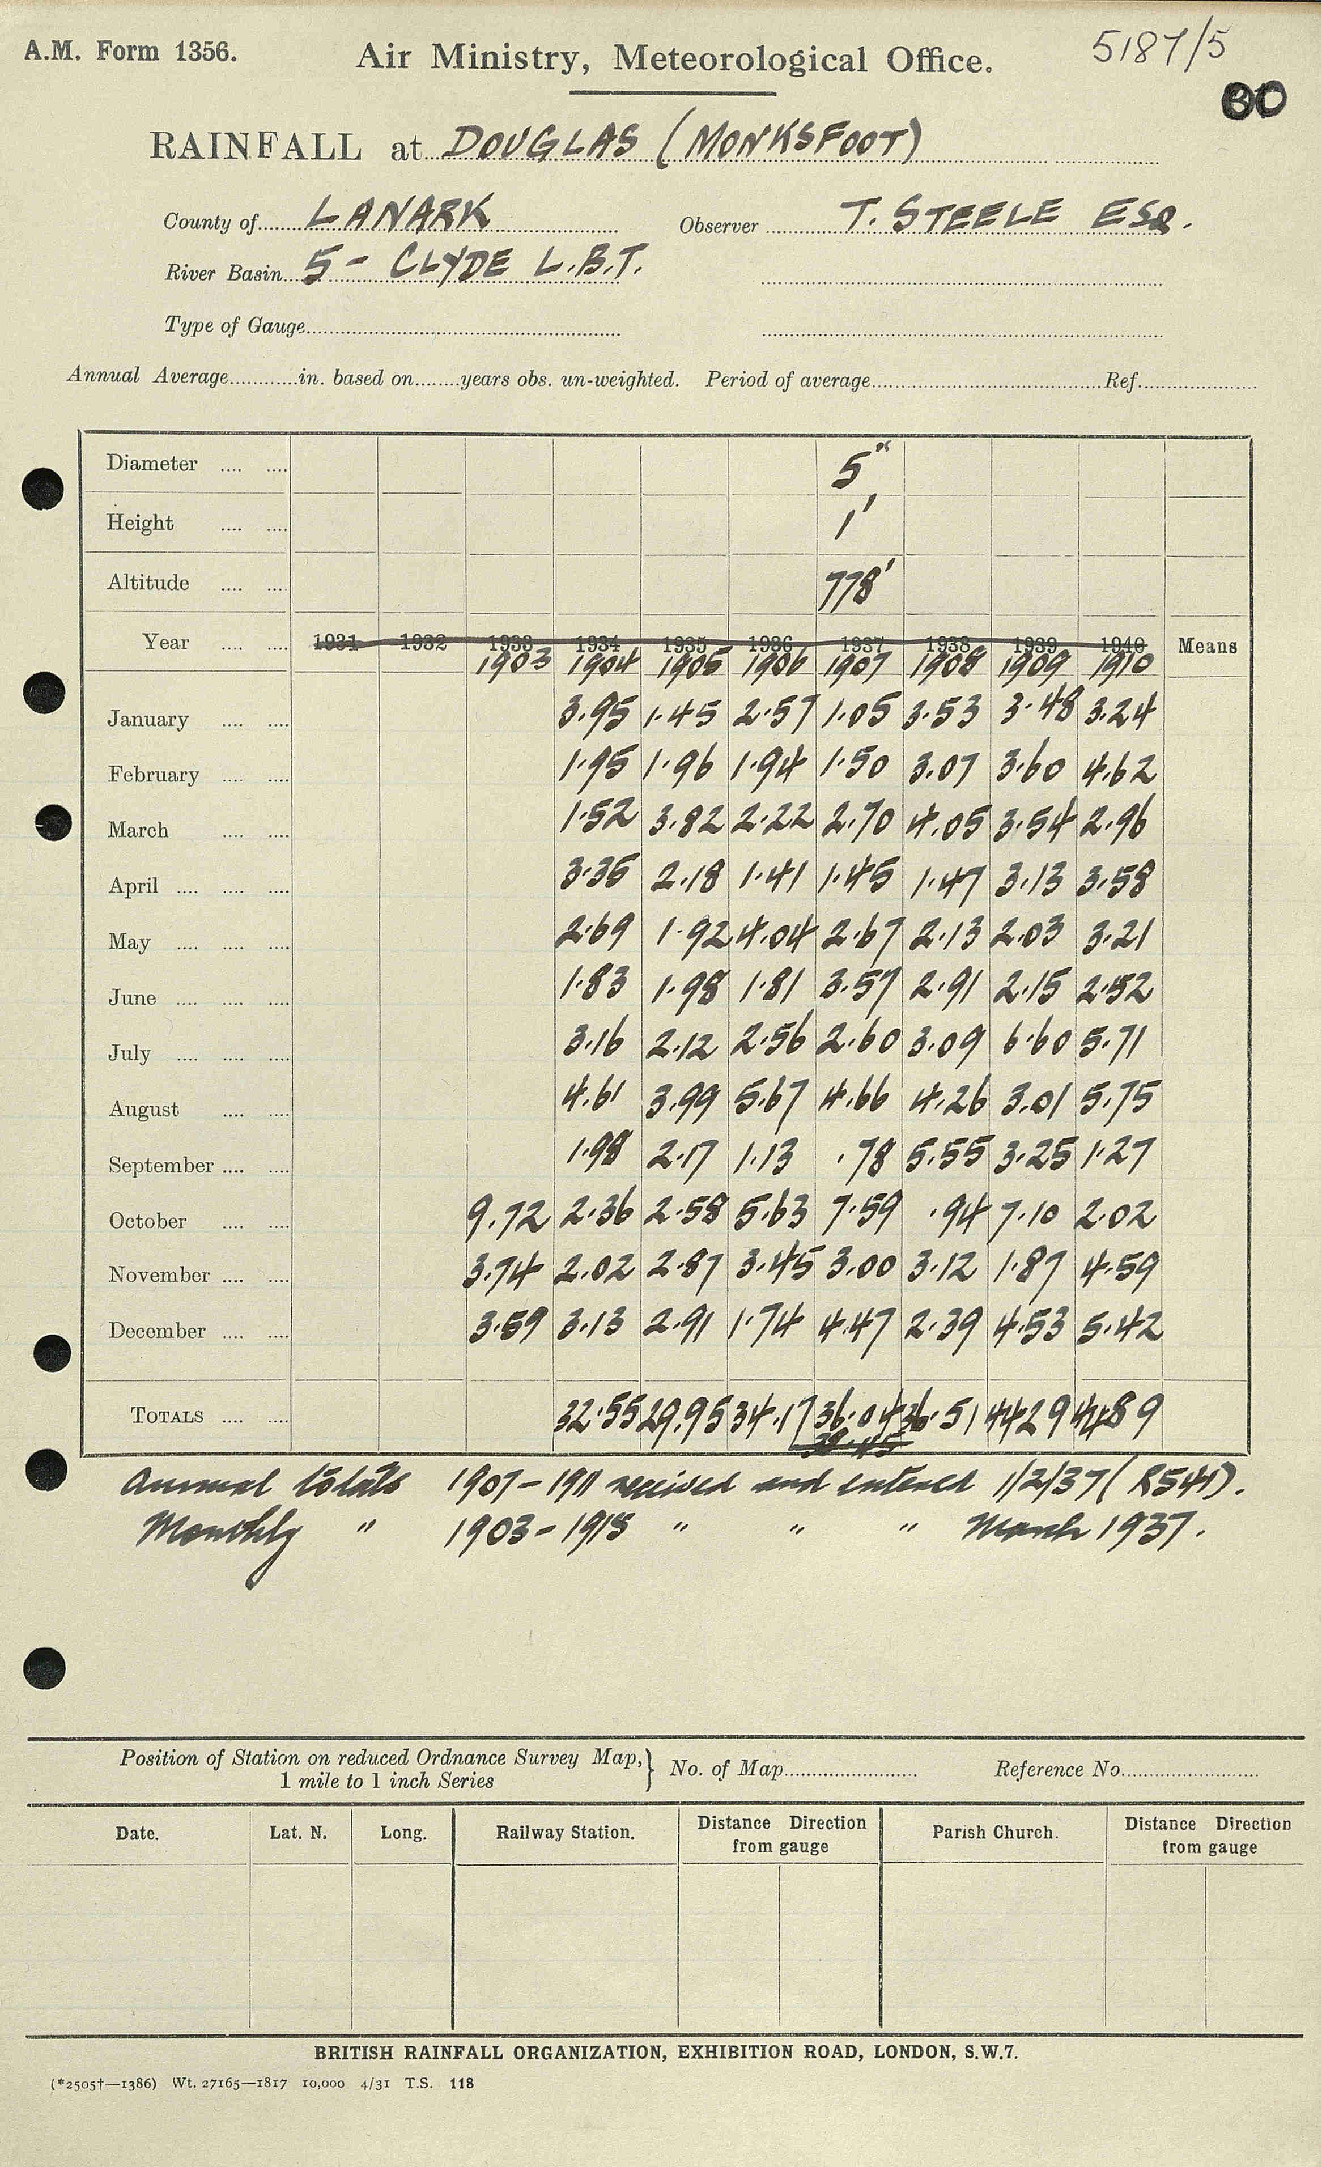 A.M. Form 1356.
Air Ministry, Meteorological Office.
5187/5
RAINFALL at DOUGLAS (MONKSFOOT)
County of LANARK Observer T. STEELE ESQ.
River Basin 5 - CLYDE L.B.T.
Type of Gauge
Annual Average in. based on years obs. un-weighted. Period of average Ref.
Diameter 5"
Height 1'
Altitude 778'
Year 1931 1932 1933 1934 1935 1936 1937 1938 1939 1940 Means
1903 1904 1905 1906 1907 1908 1909 1910
January 3.95 1.45 2.57 1.05 3.53 3.48 3.24
February 1.95 1.96 1.94 1.50 3.07 3.60 4.62
March 1.52 3.82 2.22 2.70 4.05 3.54 2.96
April 3.35 2.18 1.41 1.45 1.47 3.13 3.58
May 2.69 1.92 4.04 2.67 2.13 2.03 3.21
June 1.83 1.98 1.81 3.57 2.91 2.15 2.52
July 3.16 2.12 2.56 2.60 3.09 6.60 5.71
August 4.61 3.99 5.67 4.66 4.26 3.01 5.75
September 1.98 2.17 1.13 .78 5.55 3.25 1.27
October 9.72 2.36 2.58 5.63 7.59 .94 7.10 2.02
November 3.74 2.02 2.87 3.45 3.00 3.12 1.87 4.59
December 3.59 3.13 2.91 1.74 4.47 2.39 4.53 5.42
TOTALS 32.55 29.95 34.17 36.04 36.51 44.29 44.89
Annual totals 1907-1911 received and entered 1/2/37 (R541).
Monthly " 1903-1915 " " " March 1937.
Position of Station on reduced Ordnance Survey Map,} No. of Map Reference No.
1 mile to 1 inch Series
Date. Lat. N. Long. Railway Station. Distance Direction from gauge Parish Church. Distance Direction from gauge
BRITISH RAINFALL ORGANIZATION, EXHIBITION ROAD, LONDON, S.W.7.
(*2505†—1386) Wt. 27165—1817 10,000 4/31 T.S. 118